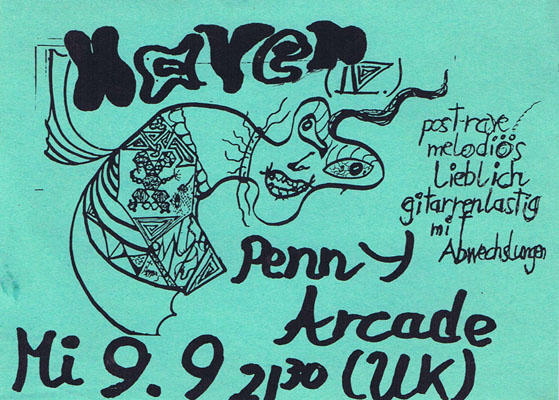 Xaver
post-rave
melodiös
lieblich
gitarrenlastig
mit
Abwechslungen
Penny
Arcade
Mi 9.9 21³⁰ (UK)